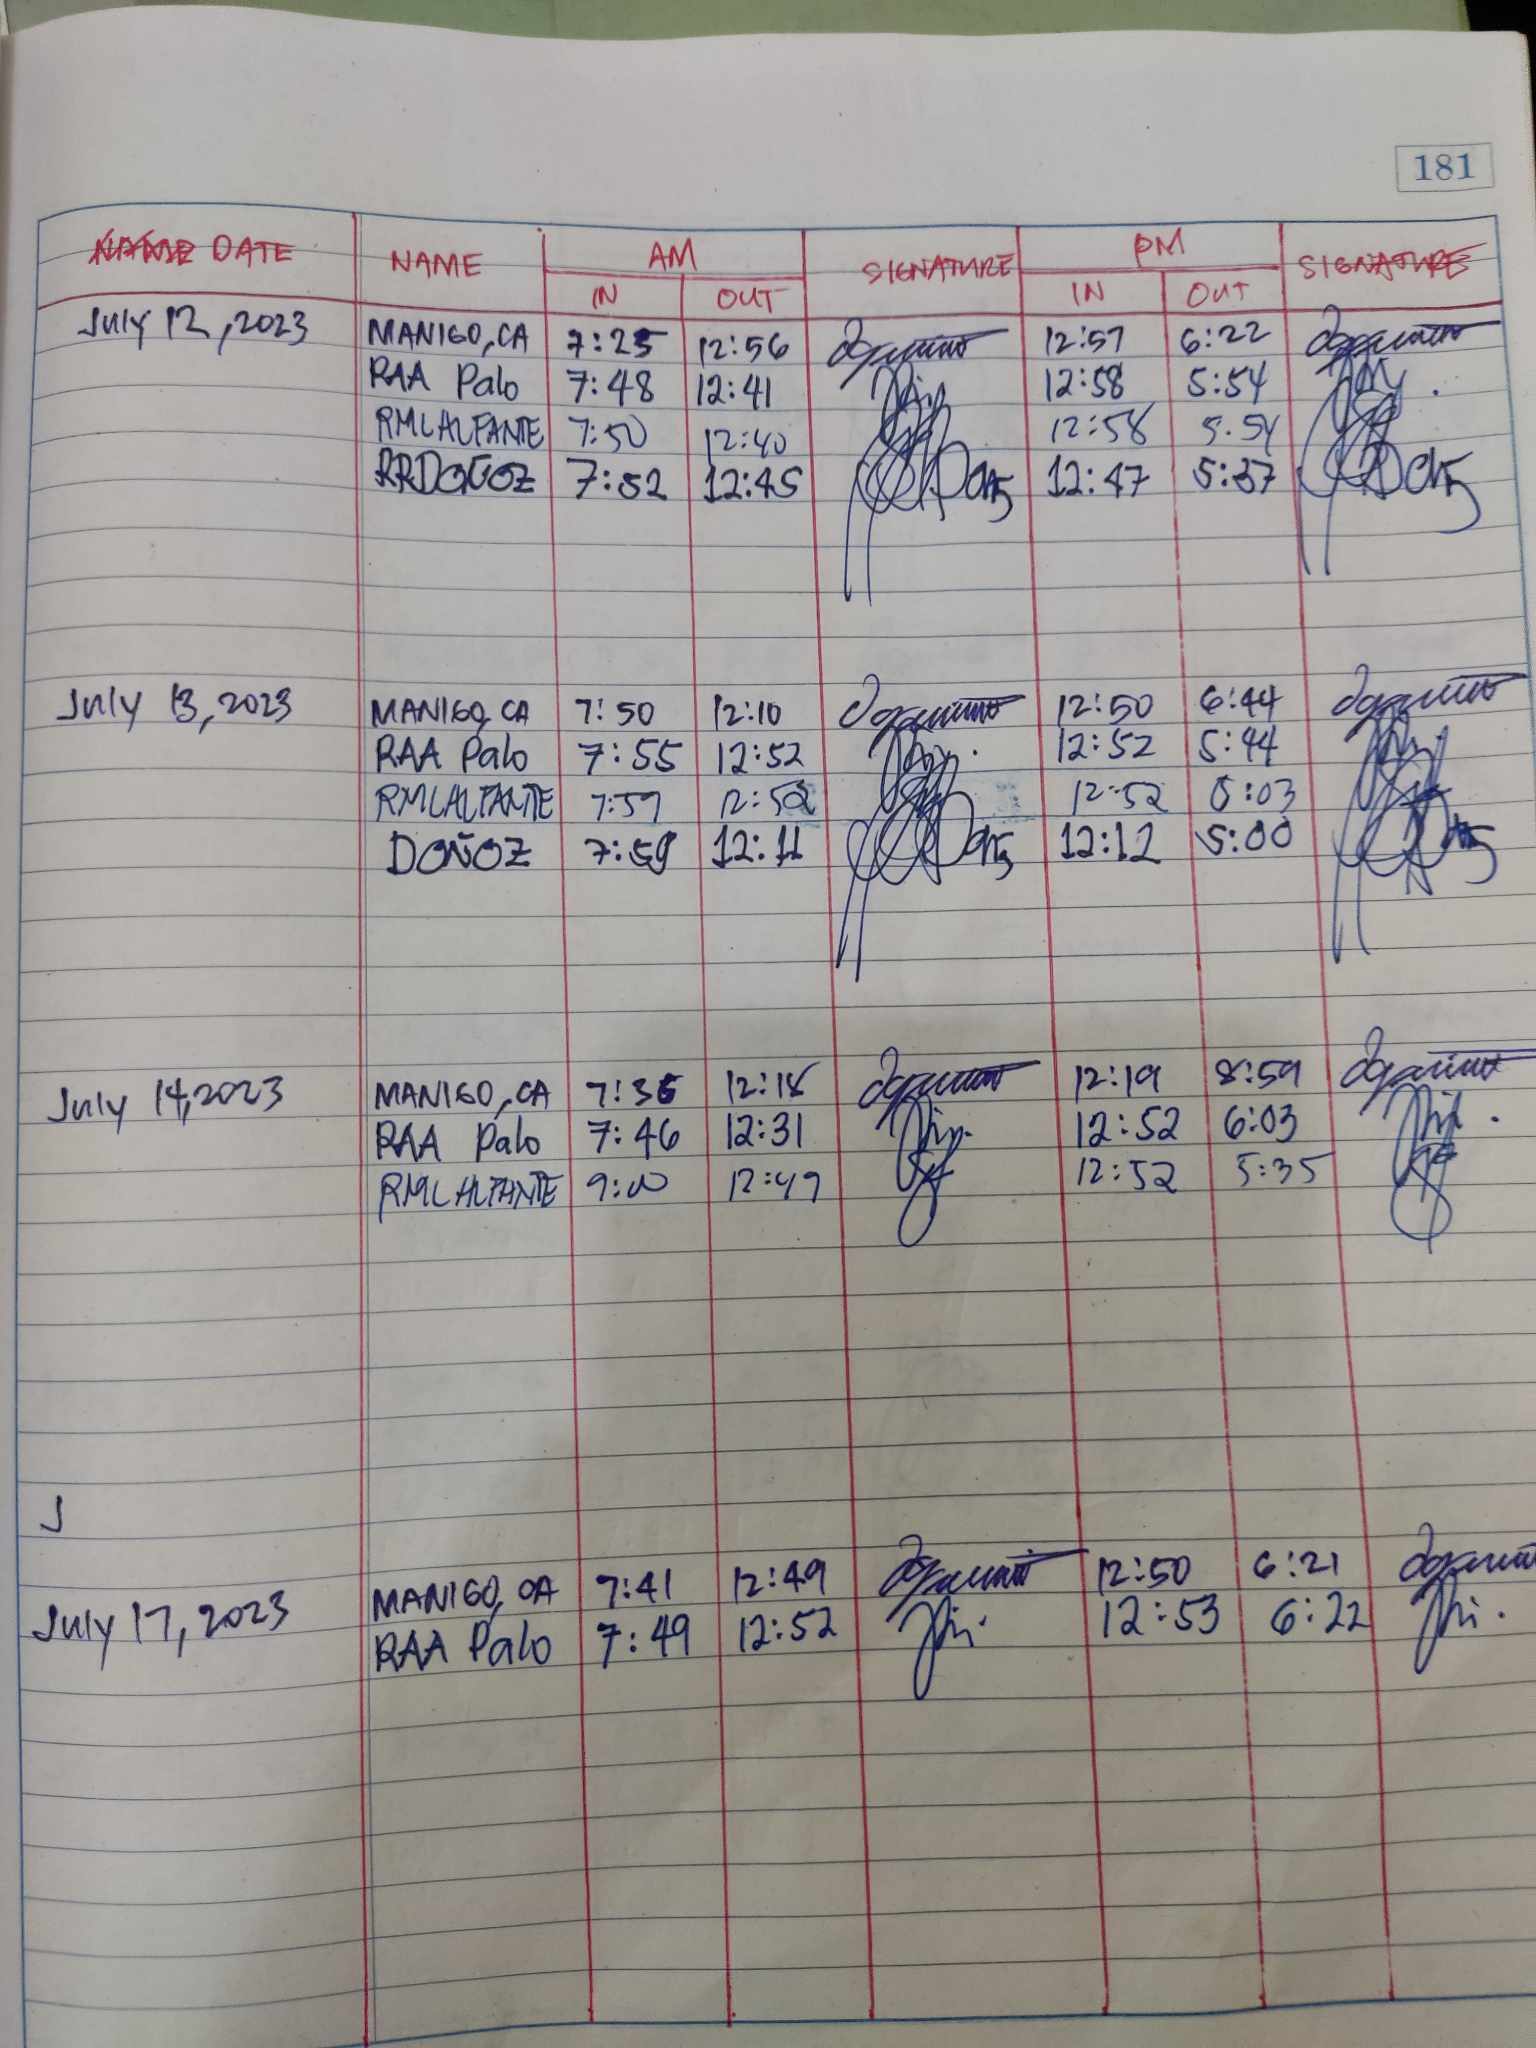 181
DATE NAME AM SIGNATURE PM SIGNATURE
IN OUT IN OUT
July 12, 2023 MANIGO, CA 7:25 12:56 12:57 6:22
RAA Palo 7:48 12:41 12:58 5:54
RMLALFANTE 7:50 12:40 12:58 5:54
RRDOÑOZ 7:52 12:45 12:47 5:37
July 13, 2023 MANIGO, CA 7:50 12:10 12:50 6:44
RAA Palo 7:55 12:52 12:52 5:44
RMLALFANTE 7:57 12:52 12:52 5:03
DOÑOZ 7:59 12:11 12:12 5:00
July 14, 2023 MANIGO, CA 7:36 12:18 12:19 8:59
RAA Palo 7:46 12:31 12:52 6:03
RMLALFANTE 9:00 12:49 12:52 5:35
J
MANIGO, CA 7:41 12:49 12:50 6:21
July 17, 2023 RAA Palo 7:49 12:52 12:53 6:22